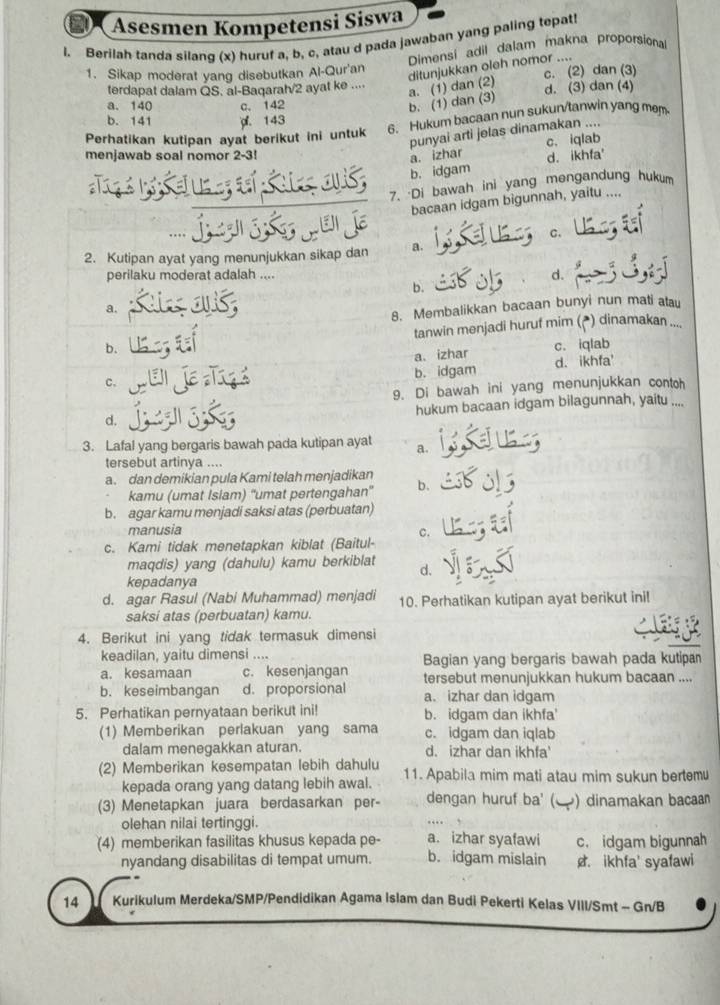 Asesmen Kompetensi Siswa
I. Berilah tanda silang (x) huruf a, b, c, atau d pada jawaban yang paling tepat!
1. Sikap moderat yang disebutkan Al-Qur'an
terdapat dalam QS. al-Baqarah/2 ayat ke ....
a. 140 c. 142
b. 141 d. 143
Perhatikan kutipan ayat berikut ini untuk
menjawab soal nomor 2-3!
وَكَذٰلِكَ جَعَلْنٰكُمْ اُمَّةً وَّسَطًا لِّتَكُوْنُوْا شُهَدَاۤءَ
عَلَى النَّاسِ وَيَكُوْنَ الرَّسُوْلُ ....
2. Kutipan ayat yang menunjukkan sikap dan
perilaku moderat adalah ....
a. وَكَذٰلِكَ جَعَلْنٰكُمْ
b. اُمَّةً وَّسَطًا
c. شُهَدَاۤءَ عَلَى النَّاسِ
d. وَيَكُوْنَ الرَّسُوْلُ
3. Lafal yang bergaris bawah pada kutipan ayat
tersebut artinya ....
a. dan demikian pula Kami telah menjadikan
kamu (umat Islam) "umat pertengahan"
b. agar kamu menjadi saksi atas (perbuatan)
manusia
c. Kami tidak menetapkan kiblat (Baitul-
maqdis) yang (dahulu) kamu berkiblat
kepadanya
d. agar Rasul (Nabi Muhammad) menjadi
saksi atas (perbuatan) kamu.
4. Berikut ini yang tidak termasuk dimensi
keadilan, yaitu dimensi ....
a. kesamaan c. kesenjangan
b. keseimbangan d. proporsional
5. Perhatikan pernyataan berikut ini!
(1) Memberikan perlakuan yang sama
dalam menegakkan aturan.
(2) Memberikan kesempatan lebih dahulu
kepada orang yang datang lebih awal.
(3) Menetapkan juara berdasarkan per-
olehan nilai tertinggi.
(4) memberikan fasilitas khusus kepada pe-
nyandang disabilitas di tempat umum.
Dimensi adil dalam makna proporsional
ditunjukkan oleh nomor ....
a. (1) dan (2) c. (2) dan (3)
b. (1) dan (3) d. (3) dan (4)
6. Hukum bacaan nun sukun/tanwin yang mem-
punyai arti jelas dinamakan ....
a. izhar c. iqlab
b. idgam d. ikhfa'
7. Di bawah ini yang mengandung hukum
bacaan idgam bigunnah, yaitu ....
a. وَسَطًا لِّتَكُوْنُوْا c. اُمَّةً وَّسَطًا
b. وَاِنْ كَانَتْ d. لَرَءُوْفٌ رَّحِيْمٌ
8. Membalikkan bacaan bunyi nun mati atau
tanwin menjadi huruf mim (م) dinamakan ....
a. izhar c. iqlab
b. idgam d. ikhfa'
9. Di bawah ini yang menunjukkan contoh
hukum bacaan idgam bilagunnah, yaitu ....
a. وَسَطًا لِّتَكُوْنُوْا
b. وَاِنْ كَانَتْ
c. اُمَّةً وَّسَطًا
d. لَكَبِيْرَةً اِلَّا
10. Perhatikan kutipan ayat berikut ini!
مِمَّنْ يَّنْقَلِبُ
Bagian yang bergaris bawah pada kutipan
tersebut menunjukkan hukum bacaan ....
a. izhar dan idgam
b. idgam dan ikhfa'
c. idgam dan iqlab
d. izhar dan ikhfa'
11. Apabila mim mati atau mim sukun bertemu
dengan huruf ba' (ب) dinamakan bacaan
....
a. izhar syafawi c. idgam bigunnah
b. idgam mislain d. ikhfa' syafawi
14 Kurikulum Merdeka/SMP/Pendidikan Agama Islam dan Budi Pekerti Kelas VIII/Smt - Gn/B